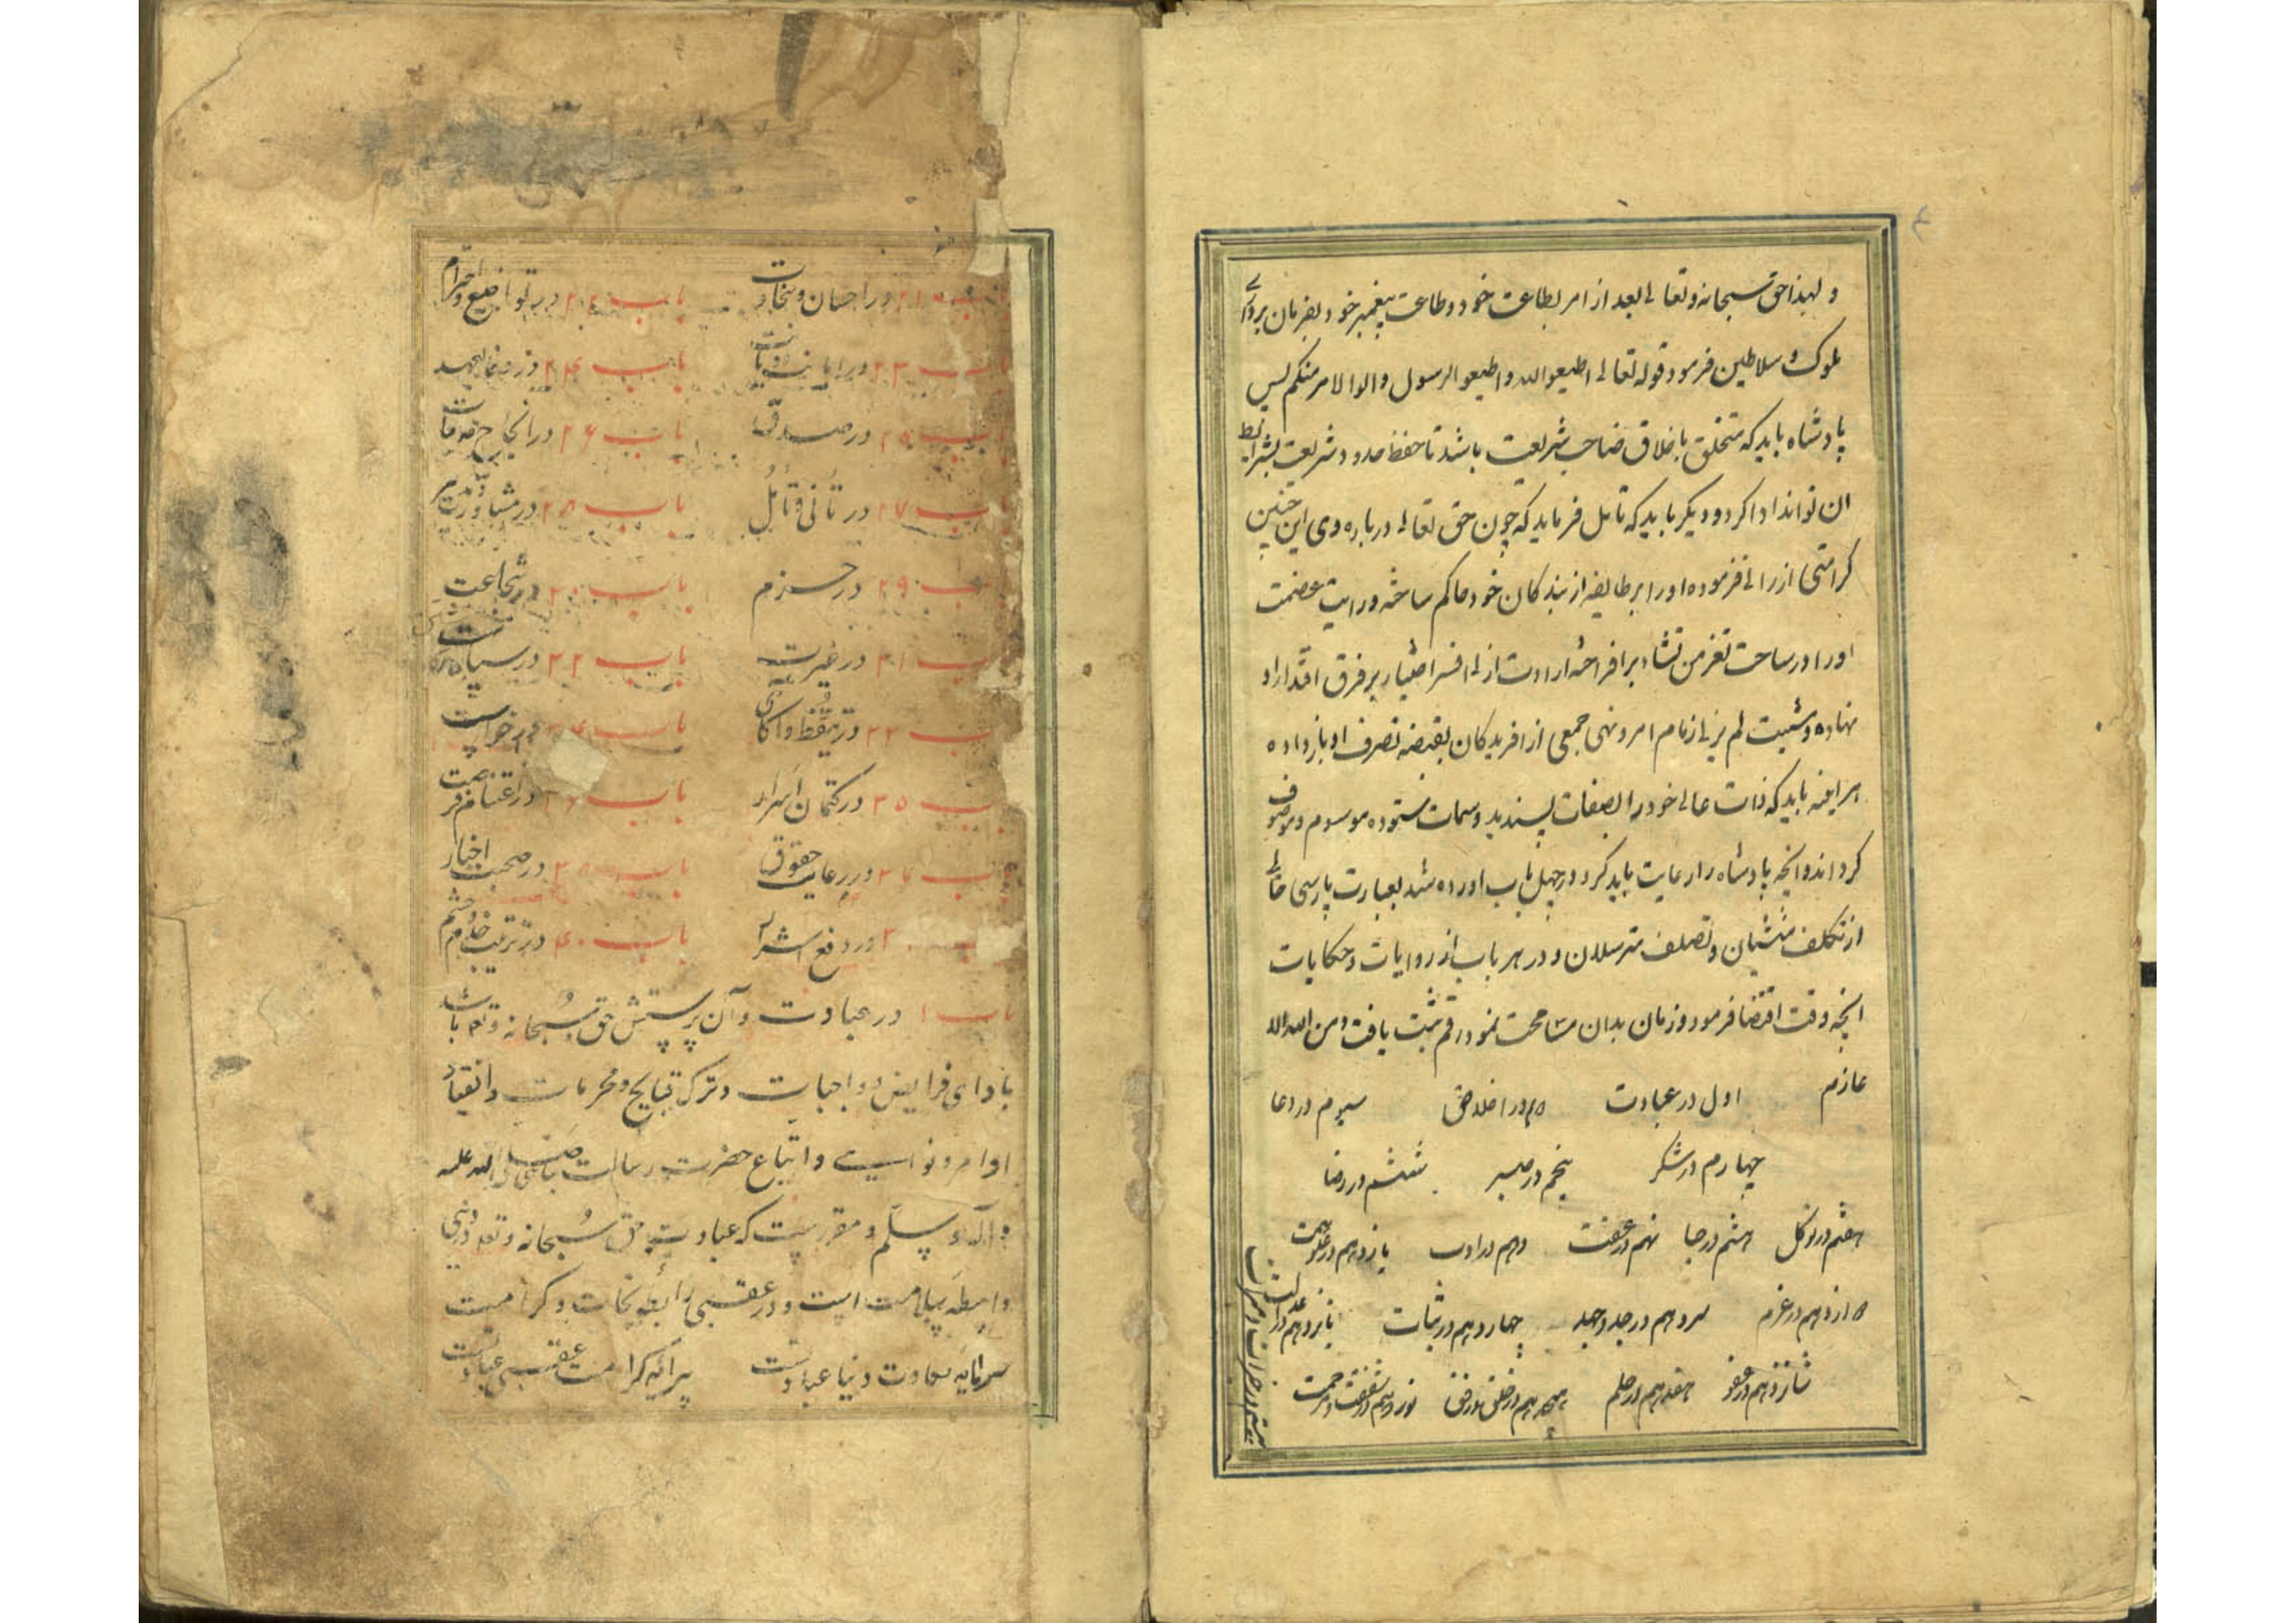 ولهذا حق سبحانه و تعالی بعد از امر بطاعت خود و طاعت پیغمبر خود بفرمان برداری
ملوک و سلاطین فرمود قوله تعالی اطیعوا الله و اطیعو الرسول و الوا لامر منکم پس
پادشاه باید که متخلق باخلاق صاحب شریعت باشد تا حفظ حدود شریعت بشرایط
ان تواند ادا کرد و دیگر باید که تامل فرماید که چون حق تعالی درباره وی این چنین
کرامتی ازرانی فرموده او را بر طایفه از بندکان خود حاکم ساخته و رایت عصمت
او را در ساحت تعز من تشاء بر افراخته ارادت ازلی افسر اختیار بر فرق اقتدار او
نهاده و مشیت لم یزلی زمام امر و نهی جمعی از افریدکان بقبضه تصرف او باز داده
هر اینه باید که ذات عالی خود را بصفات پسندیده و سمات ستوده موسوم و موصوف
کرداند و انچه پادشاه را رعایت باید کرد در چهل باب اورده شد بعبارت پارسی خالی
از تکلف منشیان و تصلف مترسلان و در هر باب از روایات و حکایات
انچه وقت اقتضا فرمود و زمان بدان مسامحت نمود رقم ثبت یافت و من الله الا
عازم اول در عبادت دوم در اخلاص سیوم در دعا
چهارم در شکر پنجم در صبر ششم در رضا
هفتم در توکل هشتم در حیا نهم در عفت دهم در ادب یازدهم در علو همت
دوازدهم در عزم سیزدهم در جد و جهد چهاردهم در ثبات پانزدهم در عدالت
شانزدهم در عفو هفدهم در حلم هجدهم در خلق و رفق نوزدهم در شفقت و مرحمت
بیستم در خیرات و مبرات
باب ۲۱ در احسان و سخاوت باب ۲۲ در تواضع و احترام
باب ۲۳ در امانت و دیانت باب ۲۴ در وفا بعهد
باب ۲۵ در صدق باب ۲۶ در انجاح حاجات
باب ۲۷ در تأنی و تأمل باب ۲۸ در مشاورت و تدبیر
باب ۲۹ در حزم باب ۳۰ در شجاعت
باب ۳۱ در غیرت باب ۳۲ در سیاست
باب ۳۳ در تیقظ و آکاهی باب ۳۴ در فراست
باب ۳۵ در کتمان اسرار باب ۳۶ در اغتنام فرصت
باب ۳۷ در رعایت حقوق باب ۳۸ در صحبت اخیار
در دفع اشرار باب ۴۰ در تربیت خدم و حشم
باب ۱ در عبادت و آن پرستش حق سبحانه و تعالی باشد
بادای فرایض و واجبات و ترک قبایح و محرمات و انقیاد
اوامر و نواهی و اتباع حضرت رسالت صلی الله علیه
و آله و سلم و مقررست که عبادت حق سبحانه و تعالی در دنیی
واسطه سلامت است و در عقبی رابطه نجات و کرامت
سرمایه سعادت دنیا عبادتست پیرایه کرامت عقبی عبادتست